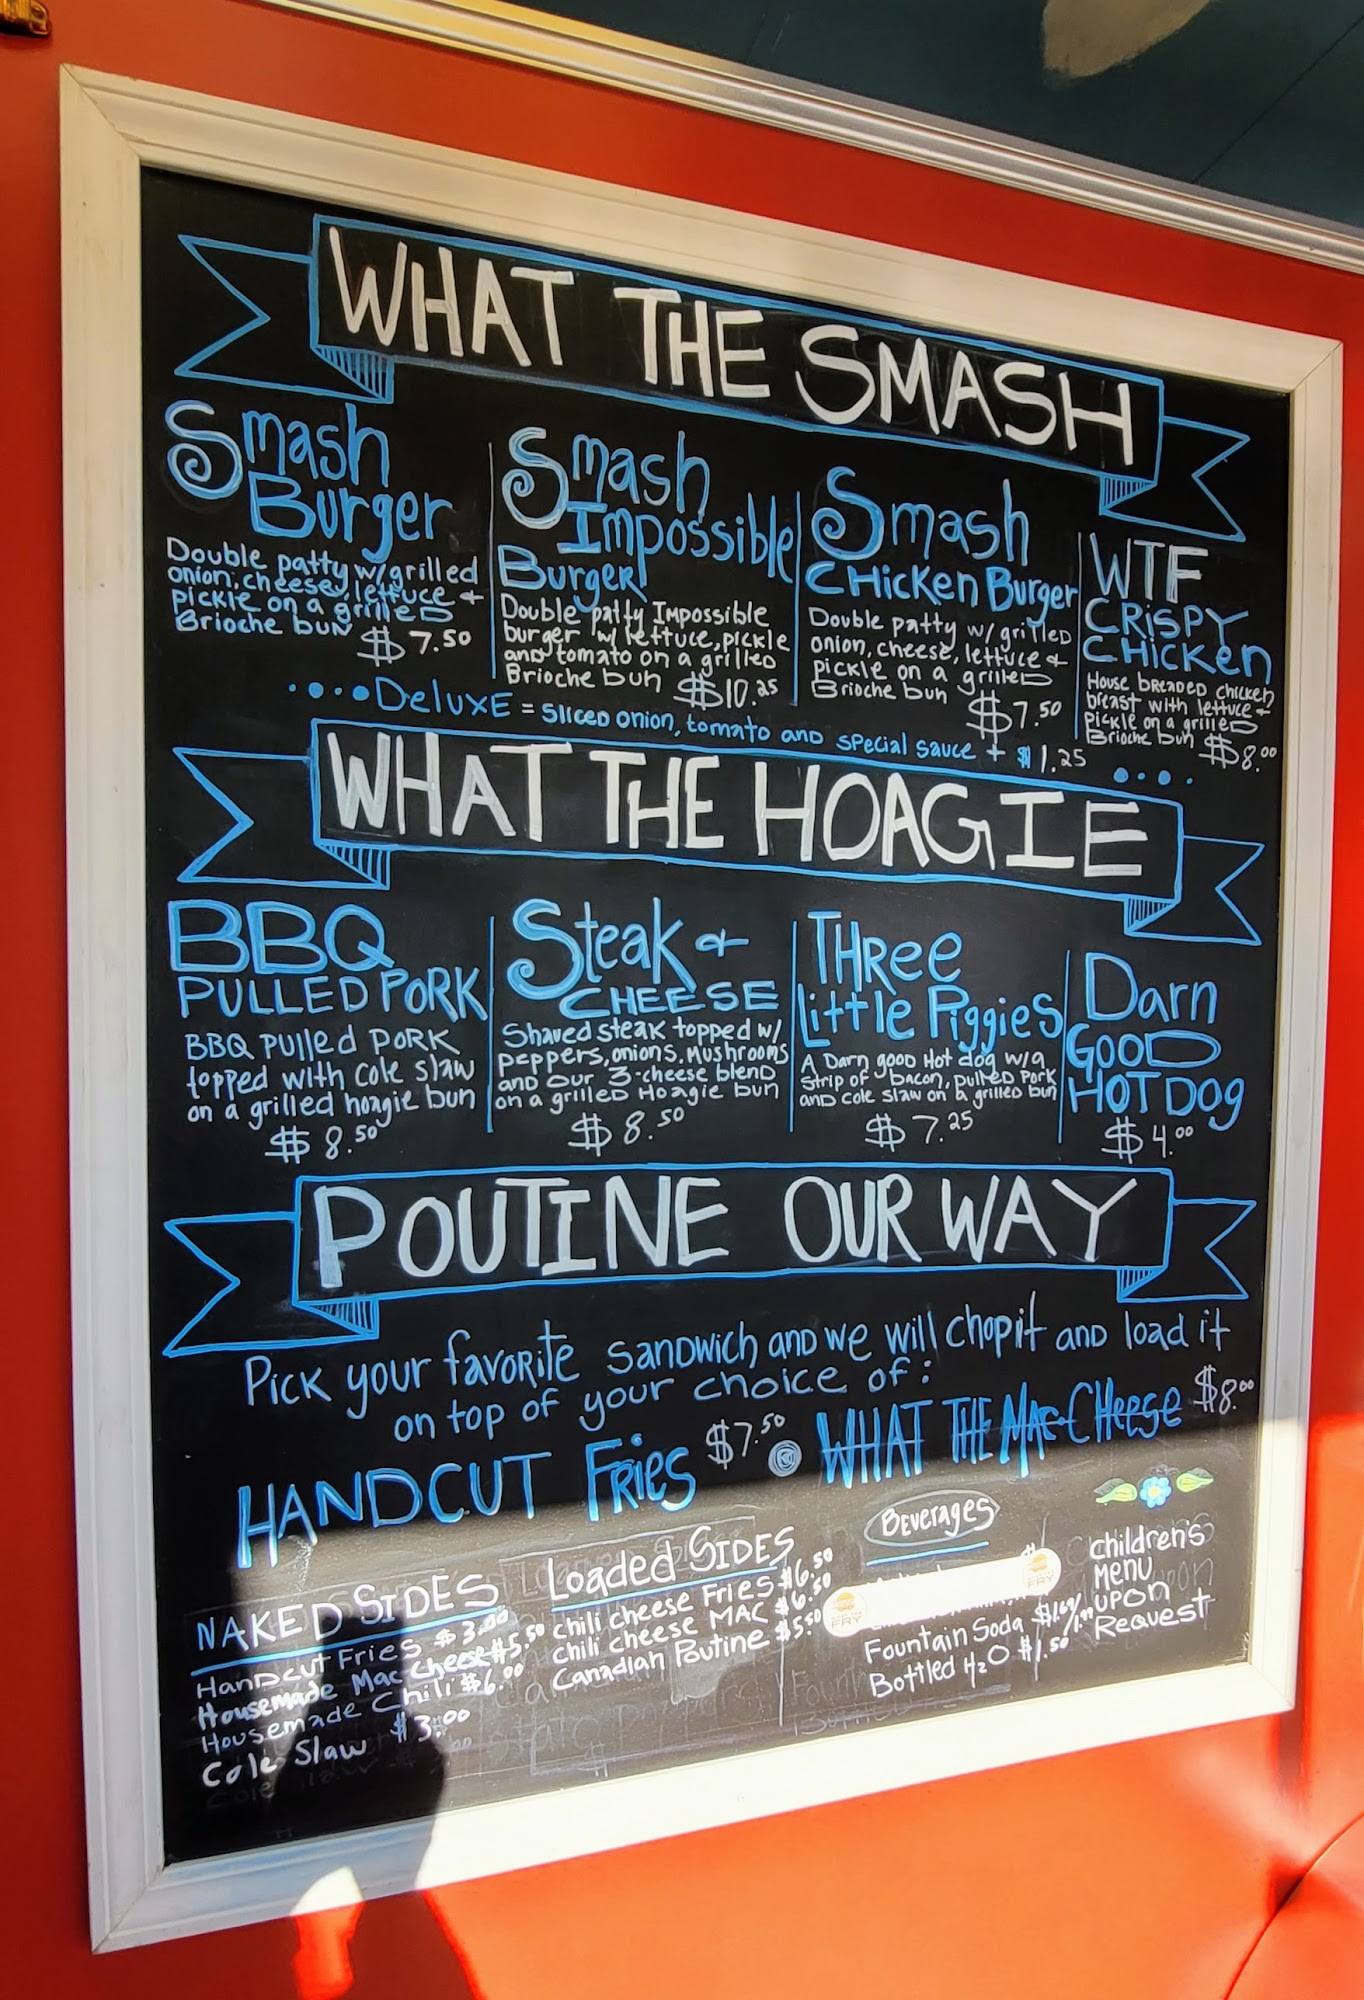 WHAT THE SMASH
Smash
Burger
Double patty w/grilled
onion, cheese, lettuce +
pickle on a grilled
Brioche bun $7.50
Smash
Impossible
Burger
Double patty Impossible
burger w/ lettuce, pickle
and tomato on a grilled
Brioche bun $10.25
Smash
Chicken Burger
Double patty w/ grilled
onion, cheese, lettuce +
pickle on a grilled
Brioche bun $7.50
WTF
CRISPY
CHICKEN
House breaded chicken
breast with lettuce +
pickle on a grilled
Brioche bun $8.00
Deluxe = sliced onion, tomato and special sauce + $1.25
WHAT THE HOAGIE
BBQ
PULLED PORK
BBQ pulled pork
topped with cole slaw
on a grilled hoagie bun
$8.50
Steak +
CHEESE
Shaved steak topped w/
peppers, onions, mushrooms
and our 3-cheese blend
on a grilled Hoagie bun
$8.50
THree
Little Piggies
A Darn good Hot dog w/a
strip of bacon, pulled pork
and cole slaw on a grilled bun
$7.25
Darn
GOOD
HOT DOG
$4.00
POUTINE OUR WAY
Pick your favorite sandwich and we will chop it and load it
on top of your choice of:
HANDCUT Fries $7.50
WHAT THE Mac-Cheese $8.00
NAKED SIDES
Handcut Fries $3.00
Housemade Mac Cheese $5.50
Housemade Chili $6.00
Cole Slaw $3.00
Loaded SIDES
chili cheese Fries $6.50
chili cheese MAC $6.50
Canadian Poutine $5.50
Beverages
FRY
FRY
Fountain Soda $1.69/1.99
Bottled H2O $1.50
children's
Menu
upon
Request